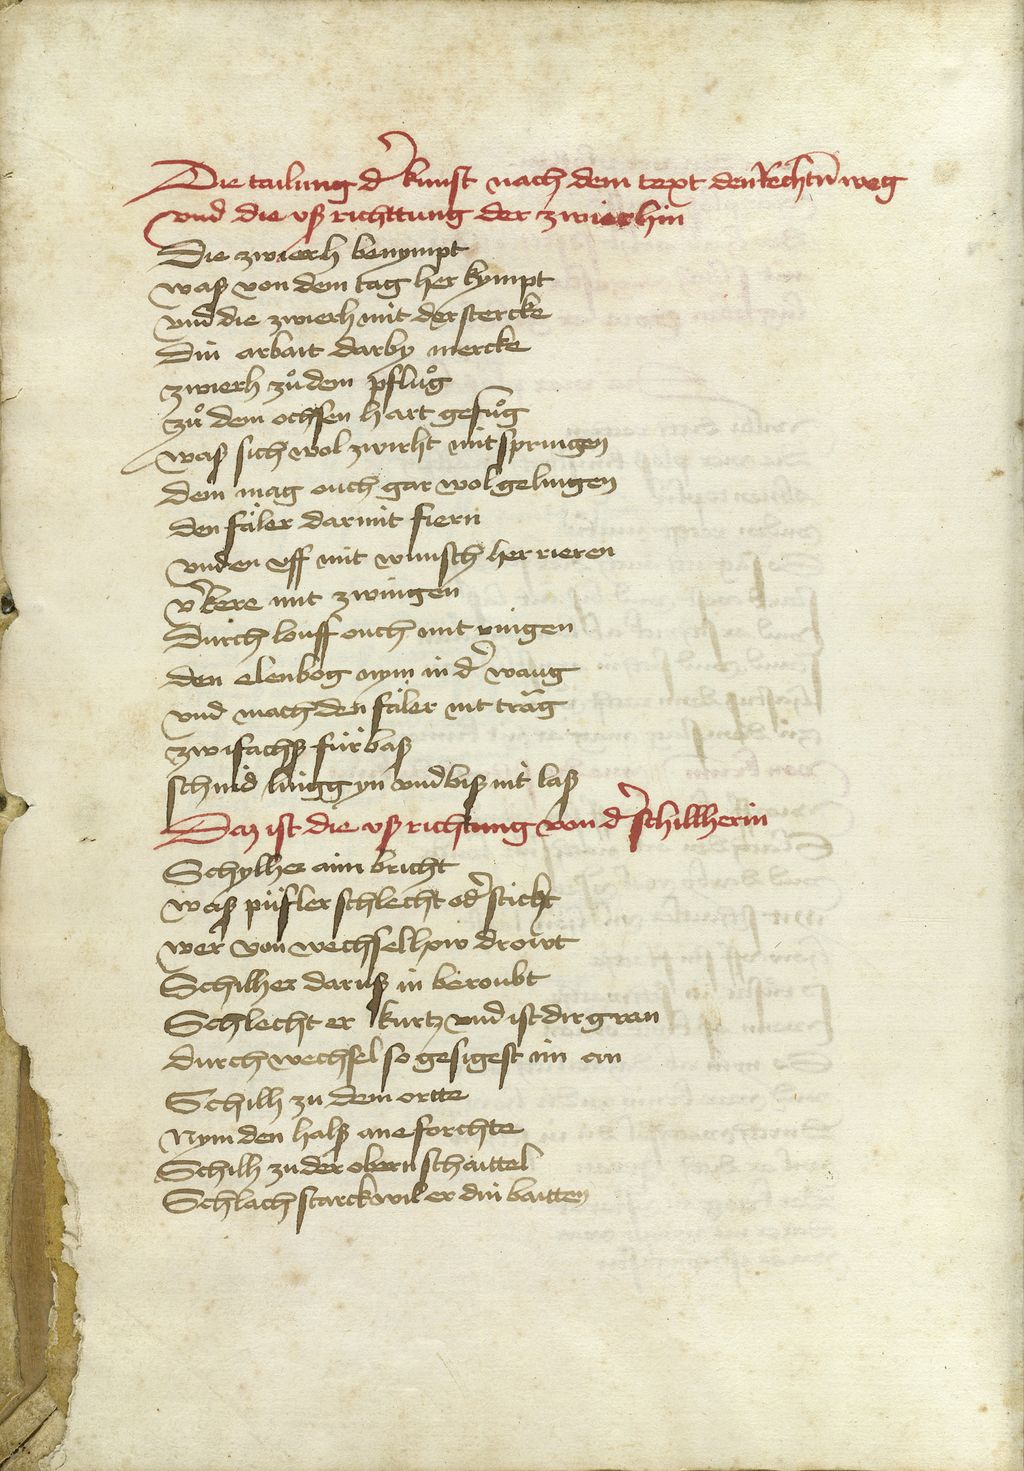 Die tailung dˀ kunst nach dem text den Rechtñ weg
vnd die vß richttung der zwierhin
Die zwierh benympt
waß von dem tag her kympt
vnd die zwierh mit der stercke
Din arbait darby mercke
zwierh zuͦ dem pfluͦg
zuͦ dem ochsen hart gefuͦg
waß sich wol zwirht mit springen
dem mag ouch gar wol gelingen
den fäler darmit fiern
vnden vff mit wunsch her rieren
vˀkere mit zwingen
Durch louff ouch mit ringen
den elenbog nym in dˀ waug
vnd mach den fäler nit träg
zwifachß fürbaß
schnid lingg yn vnd biß nit laß
Daz ist die vß richtung von dˀ schillherin
Schylher ainn bricht
waß püfler schlecht odˀ sticht
wer von wechselhow drowt
Schilher daruß in beroubt
Schlecht er kurtz vnd ist dir gran
durch wechsel so gesigest im an
Schilh zu dem ortte
Nym den halß ane forchte
Schilh zu der obern schaittel
Schlach starck wil er din baitten